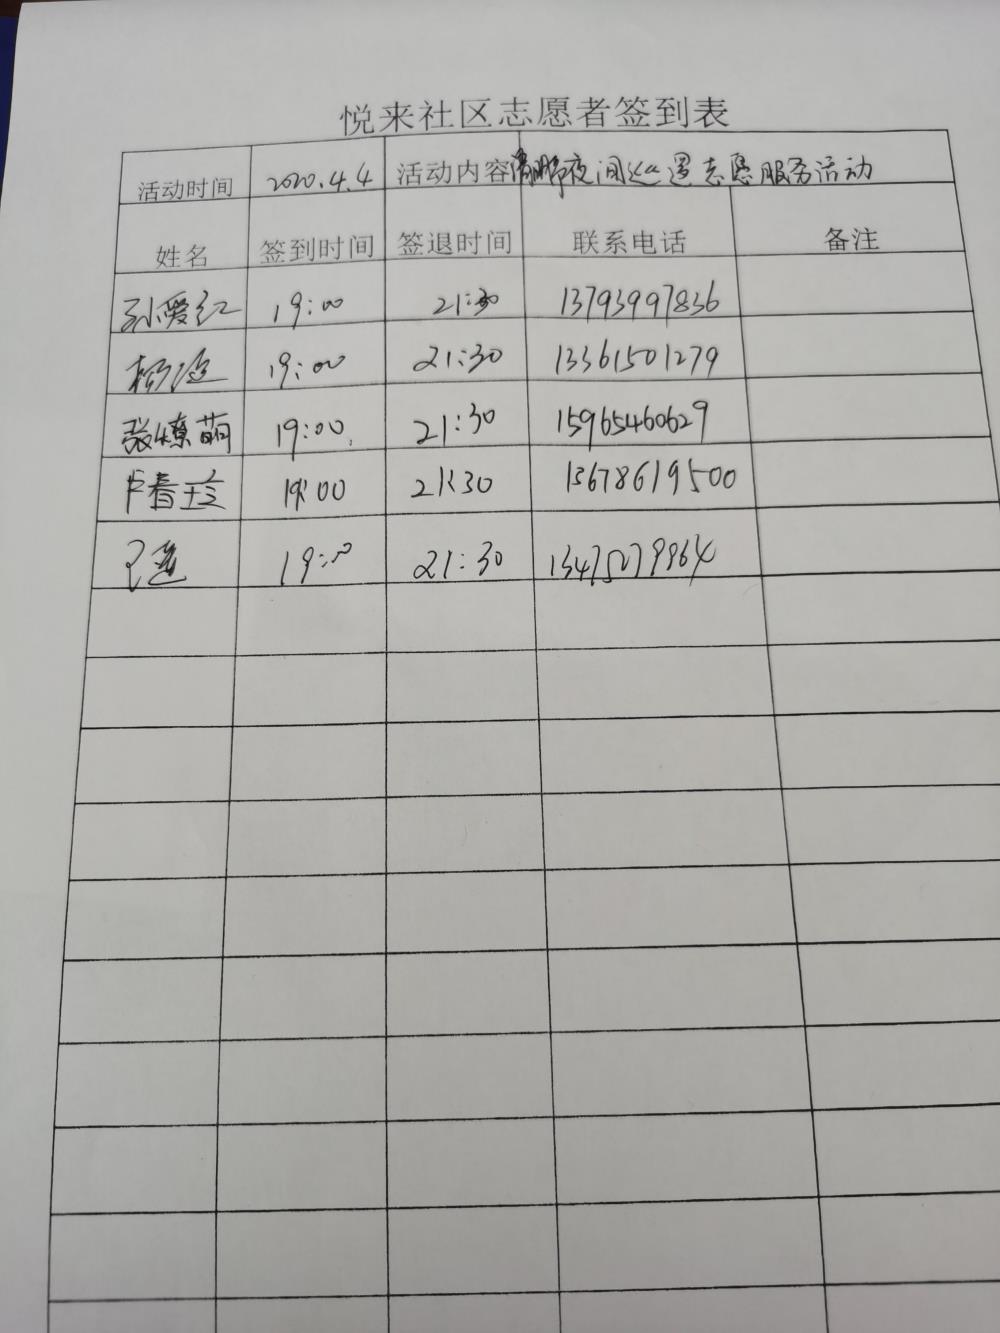 悦来社区志愿者签到表
活动时间 2020.4.4 活动内容 清明节夜间巡逻志愿服务活动
姓名 签到时间 签退时间 联系电话 备注
孙爱红 19:00 21:30 13793997836
杨 19:00 21:30 13361501279
张燎萌 19:00. 21:30 15965460629
卢春玲 19:00 21:30 13678619500
19:00 21:30 13475279964